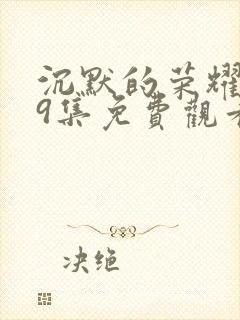 沉默的荣耀
9集免費觀看
决绝